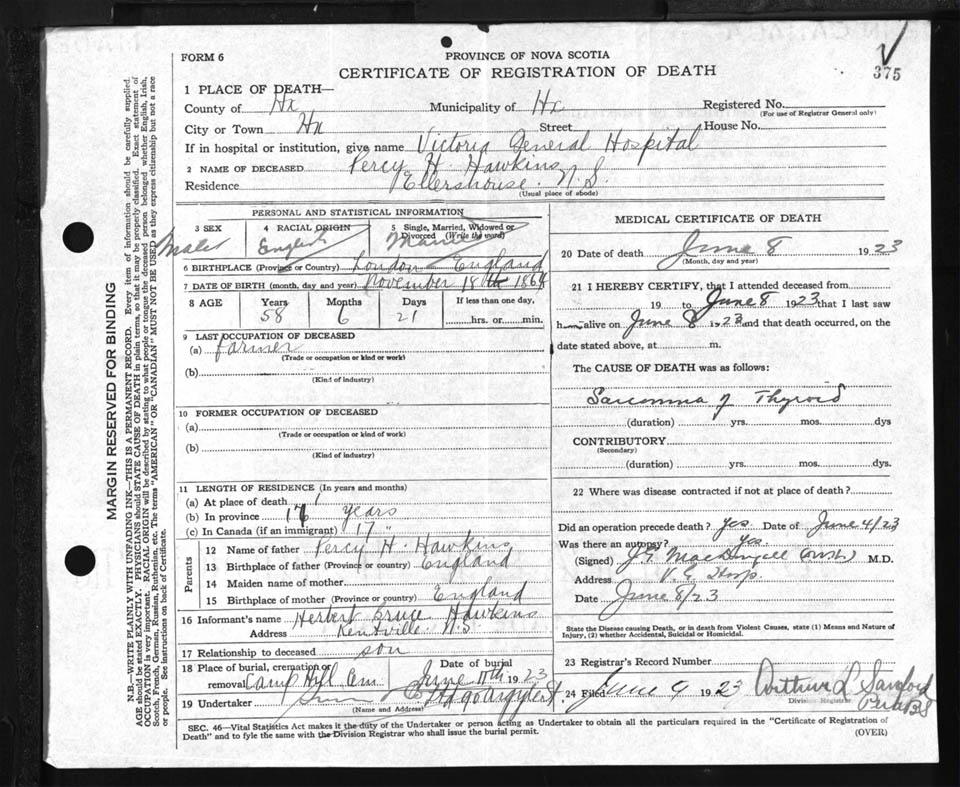 FORM 6
PROVINCE OF NOVA SCOTIA
CERTIFICATE OF REGISTRATION OF DEATH
375
1 PLACE OF DEATH—
County of Hx Municipality of Hx Registered No.
(For use of Registrar General only)
City or Town Hx Street House No.
If in hospital or institution, give name Victoria General Hospital
2 NAME OF DECEASED Percy H. Hawkins
Residence Ellershouse. N.S.
(Usual place of abode)
PERSONAL AND STATISTICAL INFORMATION
3 SEX 4 RACIAL ORIGIN 5 Single, Married, Widowed or Divorced (Write the word)
Male English
6 BIRTHPLACE (Province or Country) London England
7 DATE OF BIRTH (month, day and year) November 18th 1864
8 AGE Years Months Days If less than one day,
58 6 21 hrs. or min.
9 LAST OCCUPATION OF DECEASED
(a) farmer
(Trade or occupation or kind of work)
(b)
(Kind of industry)
10 FORMER OCCUPATION OF DECEASED
(a)
(Trade or occupation or kind of work)
(b)
(Kind of industry)
11 LENGTH OF RESIDENCE (In years and months)
(a) At place of death
(b) In province 17 years
(c) In Canada (if an immigrant) 17 "
Parents
12 Name of father Percy H. Hawkins
13 Birthplace of father (Province or country) England
14 Maiden name of mother
15 Birthplace of mother (Province or country) England
16 Informant's name Herbert Bruce Hawkins
Address Kentville N.S
17 Relationship to deceased son
18 Place of burial, cremation or removal Camp Hill Cem Date of burial June 11th 1923
19 Undertaker
(Name and Address)
MEDICAL CERTIFICATE OF DEATH
20 Date of death June 8 1923
(Month, day and year)
21 I HEREBY CERTIFY, that I attended deceased from
19 to June 8 1923 that I last saw
h im alive on June 8 1923 and that death occurred, on the
date stated above, at m.
The CAUSE OF DEATH was as follows:
Sarcoma of Thyroid
(duration) yrs. mos. dys
CONTRIBUTORY
(Secondary)
(duration) yrs. mos. dys.
22 Where was disease contracted if not at place of death?
Did an operation precede death? Yes Date of June 4/23
Was there an autopsy? Yes
(Signed) M.D.
Address V. G. Hosp.
Date June 8/23
State the Disease causing Death, or in death from Violent Causes, state (1) Means and Nature of Injury, (2) whether Accidental, Suicidal or Homicidal.
23 Registrar's Record Number
24 Filed June 9 1923 Arthur L Sanford
Division Registrar
SEC. 46—Vital Statistics Act makes it the duty of the Undertaker or person acting as Undertaker to obtain all the particulars required in the "Certificate of Registration of
Death" and to fyle the same with the Division Registrar who shall issue the burial permit.
(OVER)
MARGIN RESERVED FOR BINDING
N.B.—WRITE PLAINLY WITH UNFADING INK—THIS IS A PERMANENT RECORD. Every item of information should be carefully supplied.
AGE should be stated EXACTLY. PHYSICIANS should STATE CAUSE OF DEATH in plain terms, so that it may be properly classified. Exact statement of
OCCUPATION is very important. RACIAL ORIGIN will be described by stating to what people or tongue the deceased person belonged whether English, Irish,
Scotch, French, German, Russian, Ruthenian, etc. The terms "AMERICAN" OR "CANADIAN" MUST NOT BE USED as they express citizenship but not a race
or people. See instructions on back of Certificate.